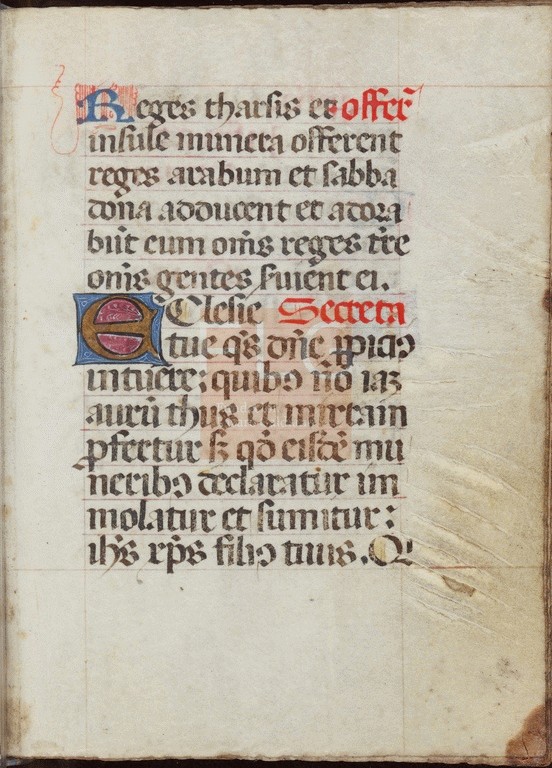 Reges tharsis et offer͛
insule munera offerent
reges arabum et sabba
dona adducent et adora
būt eum om̄s reges tr̄e
om̄s gentes ſuient ei.
Ecclesie Secreta
tue q̄s dn̄e ꝓpicia
intuere: quibꝰ nō iaꝫ
aurū thus et mirram
ꝓfertur sꝫ qd̄ eisdē mu
neribꝰ declaratur im
molatur et sumitur:
ih̄s xp̄s filiꝰ tuus. Q